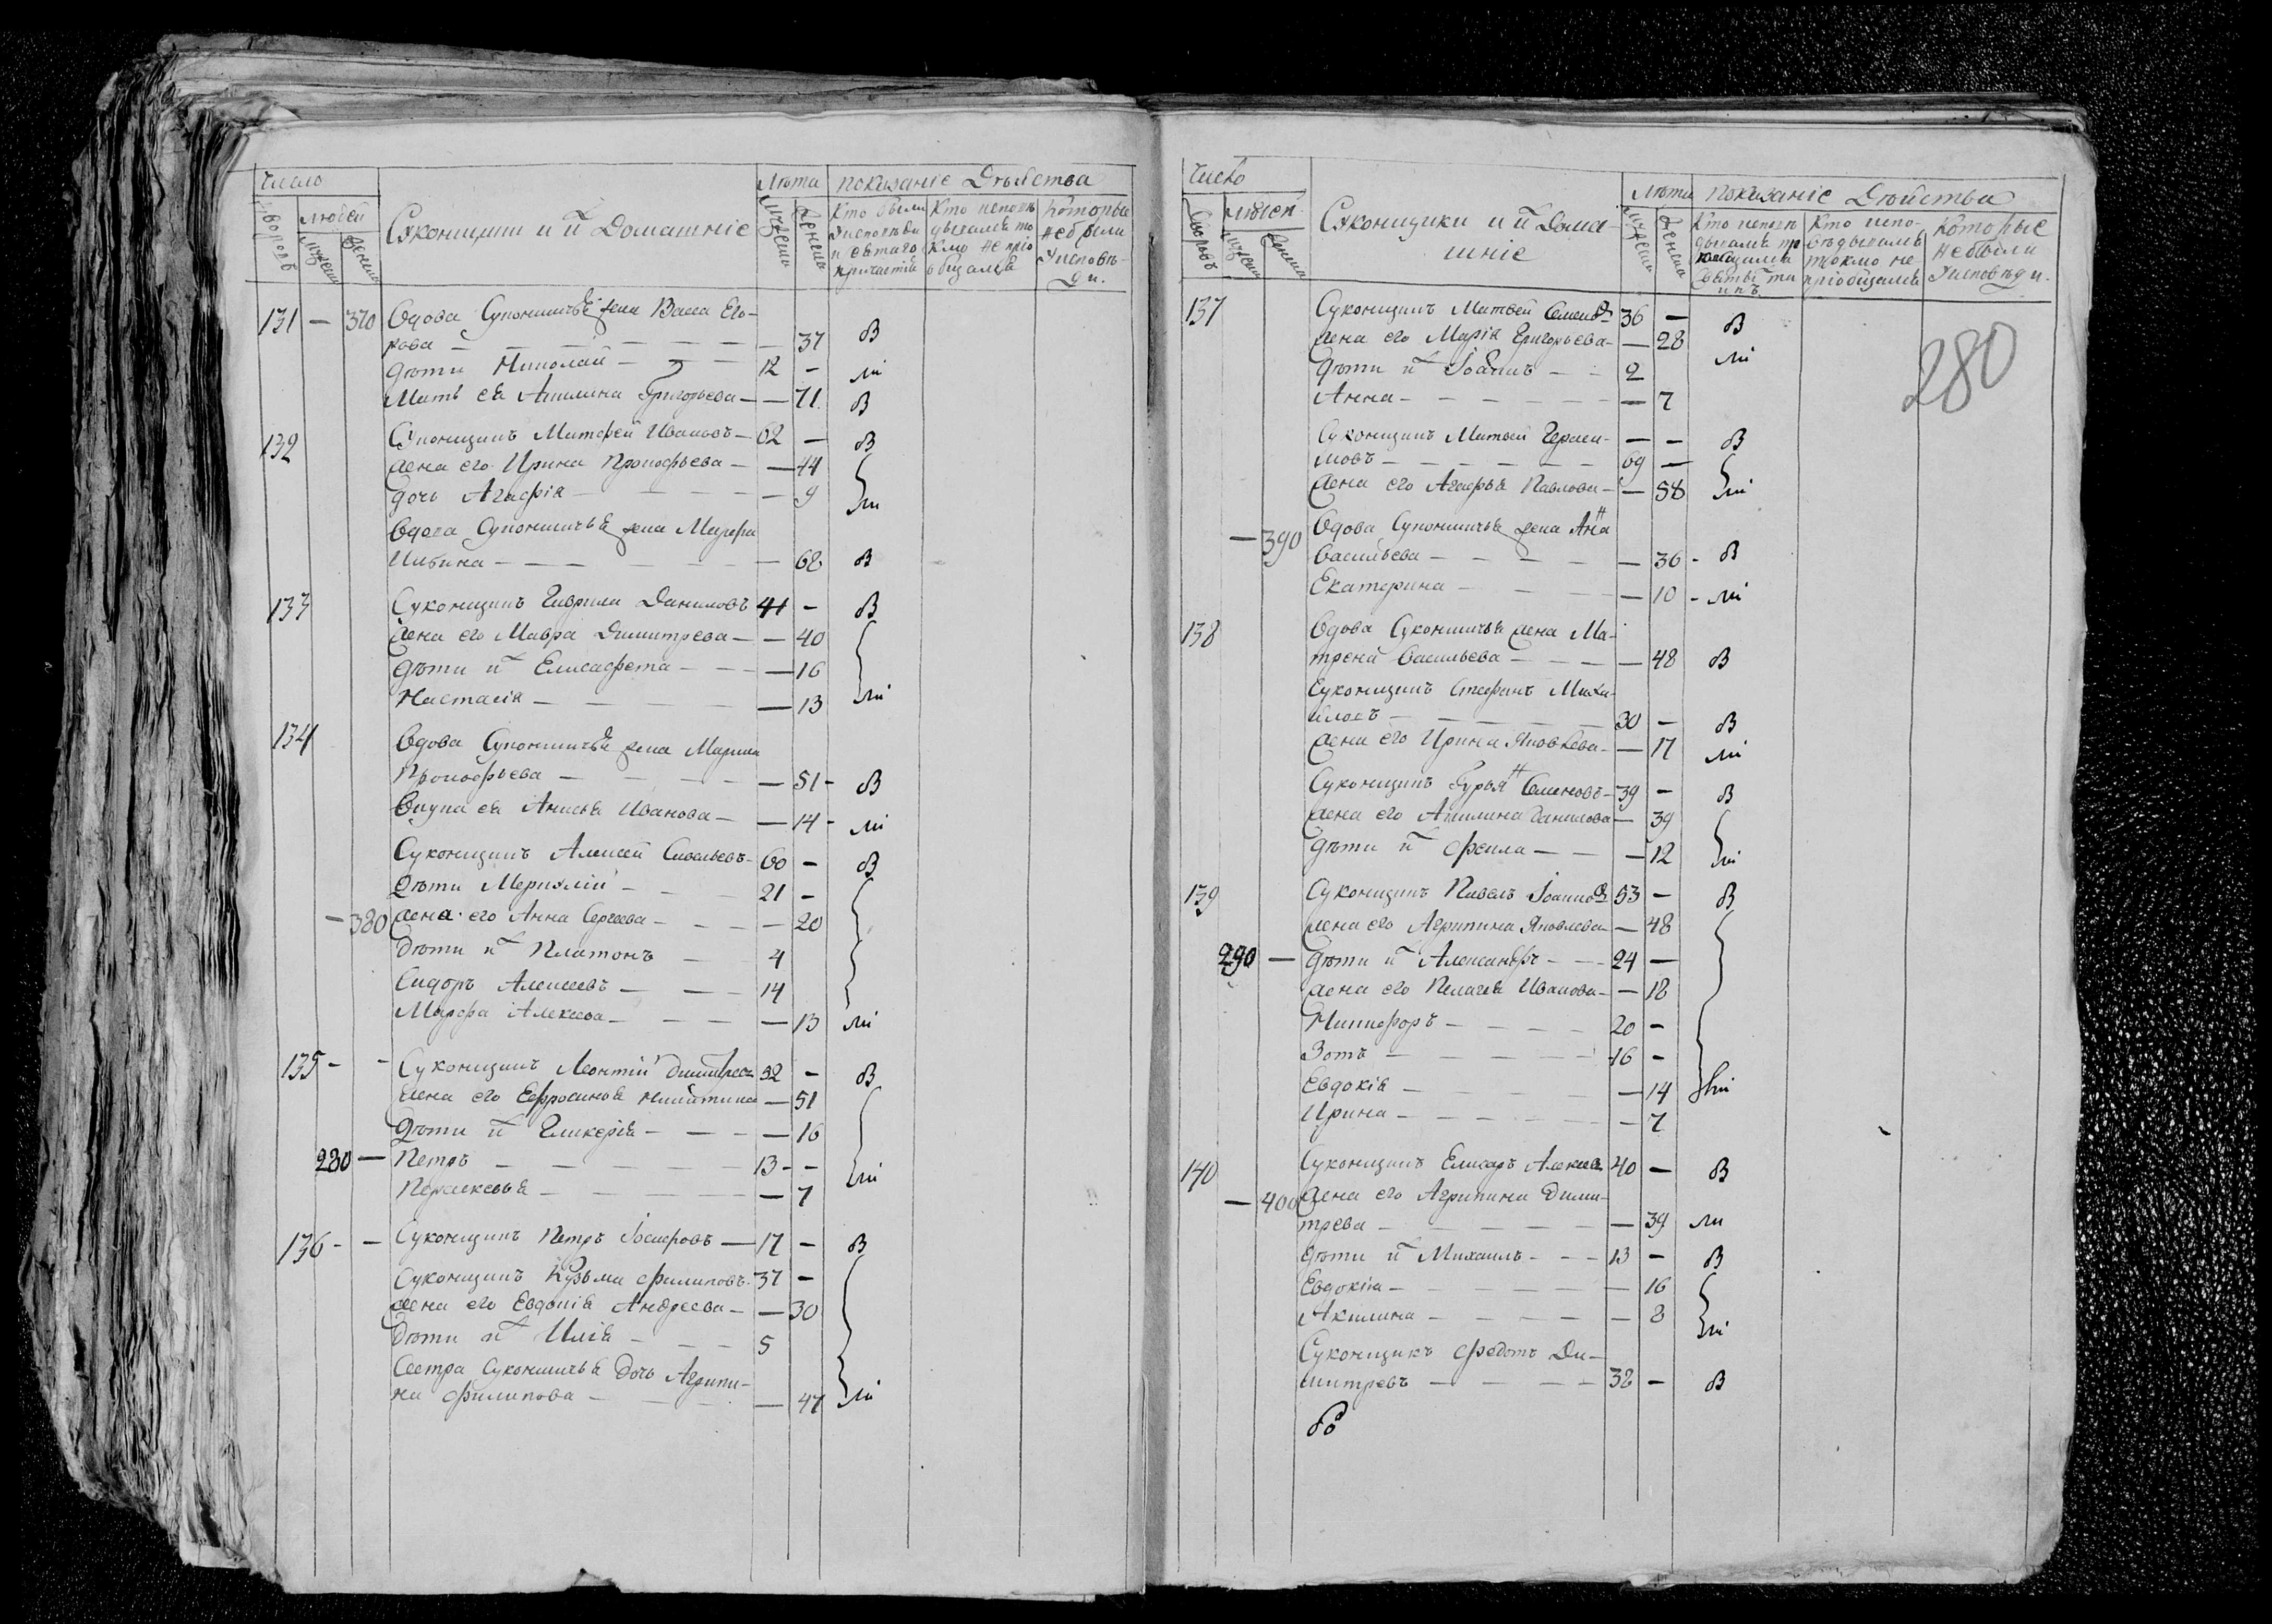 Число
Дворовъ
людей
мужеска
женска
Суконщики и и͠ Домашніе
Лѣта
мужеска
женска
показаніе Дѣйства
Кто были
Уисповѣди
и святаго
причастія
Кто исповѣ
дывался то
кмо не прiо
общался
Которые
не были
Уисповѣ-
ди.
131 — 370 Вдова Суконничья жена Васса Его-
рова — — 37 В
дѣти Николай — 12 — ли
Мать ея Акилина Григорьева — — 71 В
132 Суконщикъ Матфей Ивановъ — 62 — В
жена его Ирина Прокофьева — — 44
дочь Агафія — — 9 ли
Вдова Суконничья жена Марфа
Ильина — — 68 В
133 Суконщикъ Гаврила Даниловъ 41 — В
жена его Мавра Димитрева — — 40
дѣти и͠ Елисафета — — 16
Настасія — — 13 ли
134 Вдова Суконничья жена Марина
Прокофьева — — 51 - В
Внука ея Анисья Иванова — — 14 - ли
Суконщикъ Алексей Савельевъ - 60 — В
Дѣти Меркулій — 21 —
— 380 жена его Анна Сергеева — — 20
дѣти и͠ Платонъ — 4
Сидоръ Алексеевъ — 14
Марфа Алексева — — 13 ли
135 - - Суконщикъ Леонтій Димитрев 32 — В
жена его Ефросинья Никитина — 51
Дѣти и͠ Гликерія — — 16
280 — Петръ — 13 - -
Параскевья — — 7 ли
136 - - Суконщикъ Петръ Іосифовъ — 17 — В
Суконщикъ Кузьма Филиповъ - 37 —
жена его Евдокія Андреева — — 30
дѣти и͠ Илія — 5
Сестра Суконничья Дочь Агрипи-
на Филипова — — 47 ли
Число
Дворовъ
людей
мужеска
женска
Суконщики и и͠ Дома-
шніе
Лѣта
мужеска
женска
показаніе Дѣйства
Кто исповѣ
Кто испо-
вѣдывалъ
токмо не
пріобщался
Которые
не были
Уисповѣди.
280
137 Суконщикъ Матвей Семенов 36 — В
жена его Марія Григорьева — — 28 ли
дѣти и͠ Іоаннъ — 2
Анна — — 7
Суконщикъ Матвей Гераси- — — В
мовъ — 69 —
жена его Агафья Павлова — — 58 ли
— 390 Вдова Суконничья жена Анна
Васильева — — 36 - В
Екатерина — — 10 - ли
138 Вдова Суконничья жена Ма-
трена Васильева — — 48 В
Суконщикъ Стефанъ Миха-
йловъ — 30 — В
жена его Ирина Яковлева — — 17 ли
Суконщикъ Гурьян Семеновъ - 39 — В
жена его Акилина Данилова — 39
дѣти и͠ Фекла — — 12 ли
139 Суконщикъ Павелъ Іоаннов 53 — В
жена его Агрипина Яковлева — 48
290 — дѣти и͠ Александръ — 24 —
жена его Пелагея Иванова — — 18
Никифоръ — 20 —
Зотъ — 16 —
Евдокія — — 14 ли
Ирина — — 7
140 Суконщикъ Елизаръ Алексеев 40 — В
— 400 жена его Агрипина Дими-
трева — — 39 ли
дѣти и͠ Михаилъ — 13 — В
Евдокія — — 16
Акилина — — 8 ли
Суконщикъ Федотъ Ди-
митревъ — 32 — В